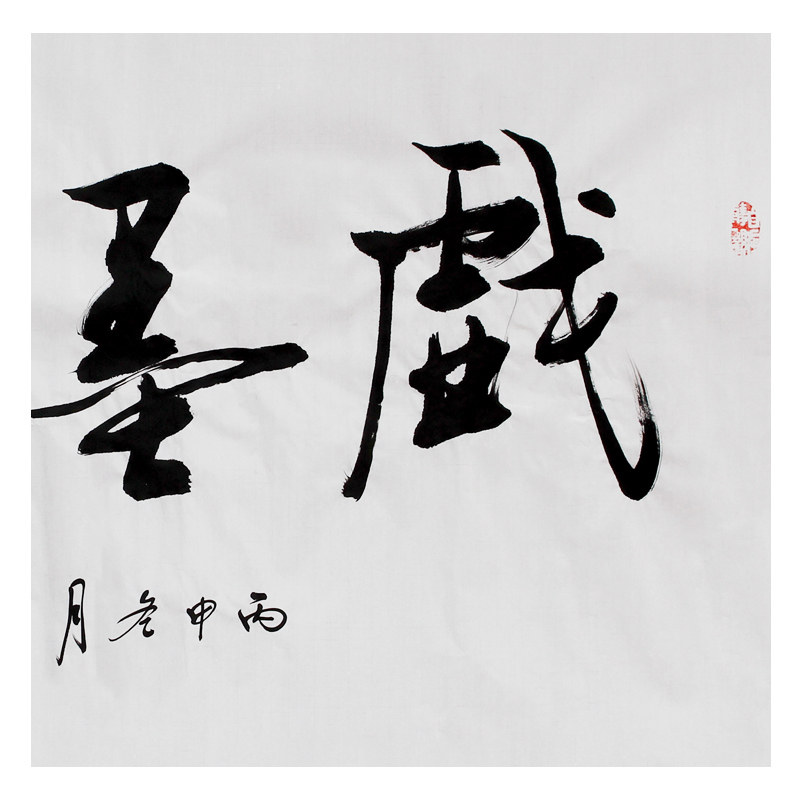 戲墨
丙申冬月